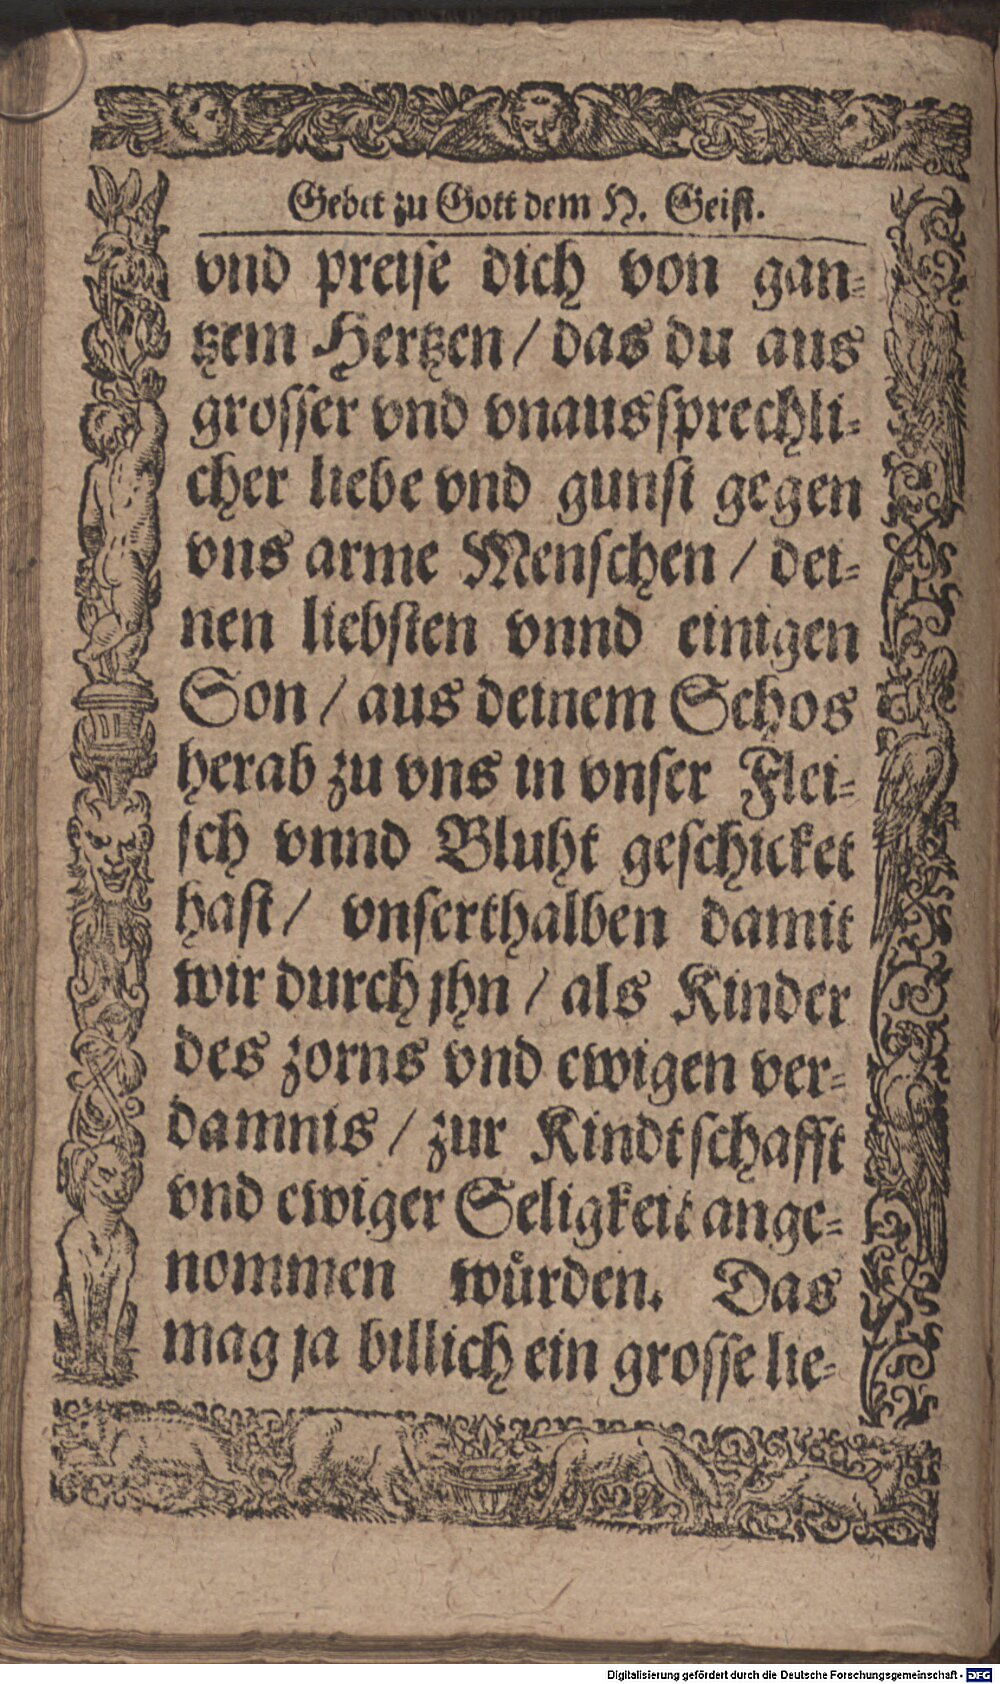 Gebet zu Gott dem H. Geist.
vnd preise dich von gan-
tzem Hertzen / das du aus
grosser vnd vnaussprechli-
cher liebe vnd gunst gegen
vns arme Menschen / dei-
nen liebsten vnnd einigen
Son / aus deinem Schos
herab zu vns in vnser Flei-
sch vnnd Bluht geschicket
hast / vnserthalben damit
wir durch jhn / als Kinder
des zorns vnd ewigen ver-
damnis / zur Kindtschafft
vnd ewiger Seligkeit ange-
nommen würden. Das
mag ja billich ein grosse lie-
Digitalisierung gefördert durch die Deutsche Forschungsgemeinschaft - DFG